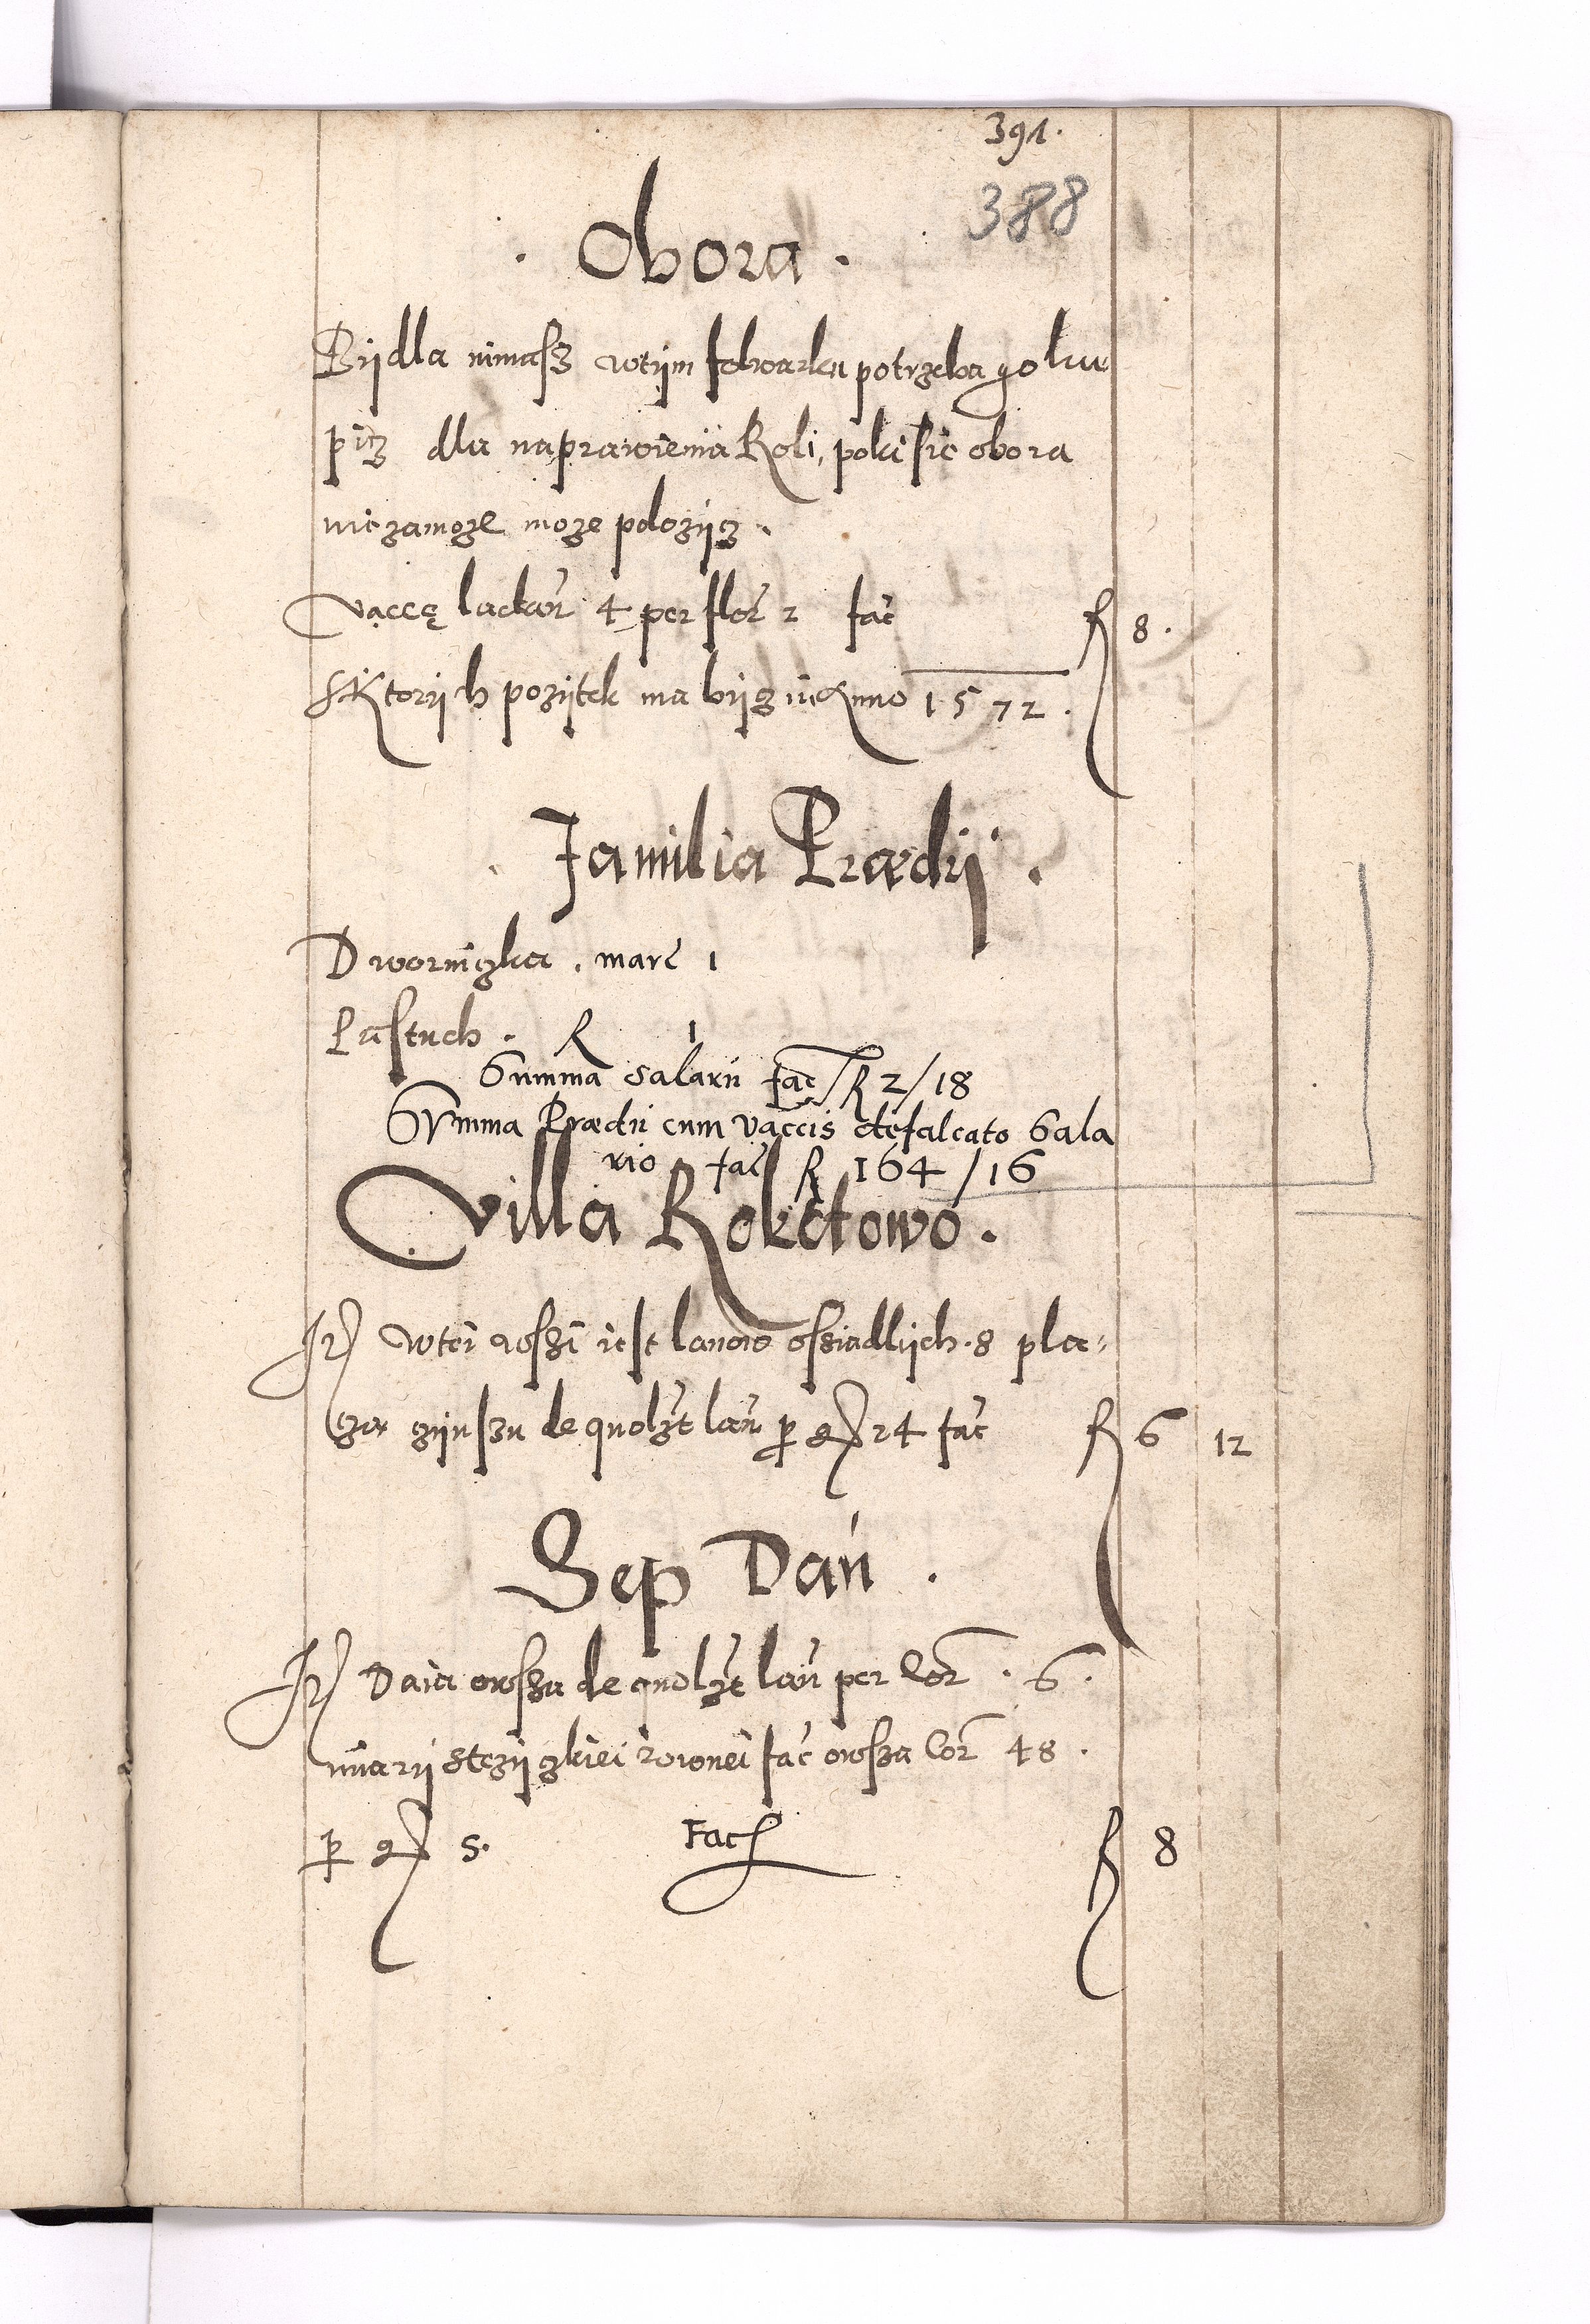 391.
388
. Obora .
Bijdla nimasz wtijm folwarku potrzeba go ku
picz dla naprawienia Roli, poki sie obora
nie zamoze moze polozijcz .
Vaccę lactan̄ 4 per flor̄ 2 fac̄ fl 8 .
Sktorijch pozijtek ma bijcz in Anno 1572 .
Familia Prædij .
Dworniczka . marc̄ 1
Pastuch . fl 1
Summa salarii fac̄ fl 2/18
Summa Prædii cum vaccis defalcato Sala
rio fac̄ fl 164/16
Villa Rokitowo .
It̄ wtei wsszi iest lanow osziadlijch . 8 pla,
cza czijnszu de quolz̄t lan̄ p̄ gr 24 fac̄ fl 6 12
Sep Dań .
It̄ Daia owsza de quolz̄t lan̄ per Cor̄ . 6 .
miarij stczijczkiei rownei fac̄ owsza Cor̄ 48 .
p̄ gr 5. Fac̄ fl 8